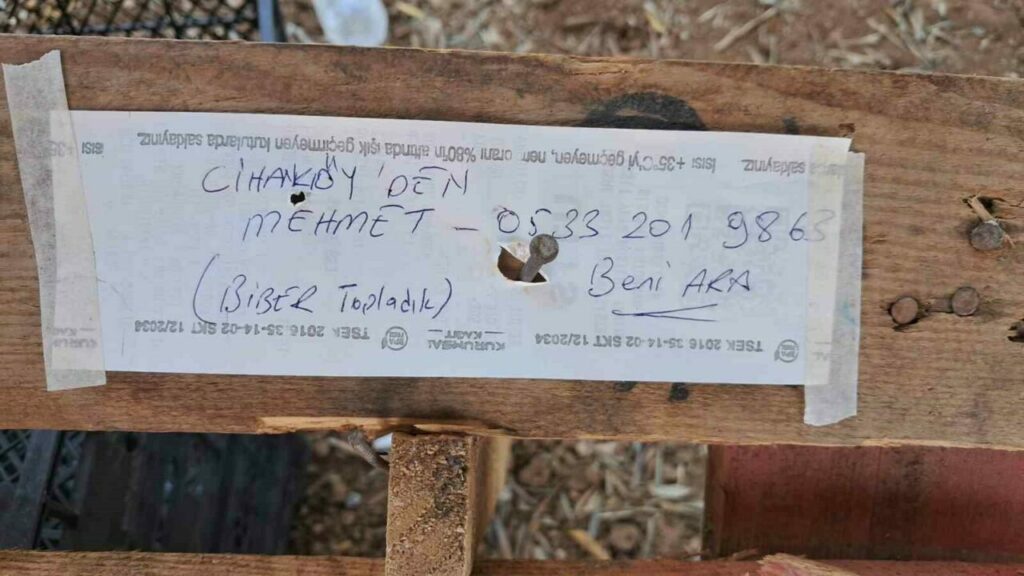 saklayınız. Isısı +35°C'yi geçmeyen, nem oranı %80'in altında ışık geçirmeyen kutularda saklayınız. ısısı +35
CİHANKÖY'DEN
MEHMET - 0533 201 9863
Beni ARA
(BİBER Topladık)
TSEK 2016 35-14-02 SKT 12/2034 KURUMSAL KAĞIT TSEK 2016 35-14-02 SKT 12/2034 KURUMSAL KAĞIT